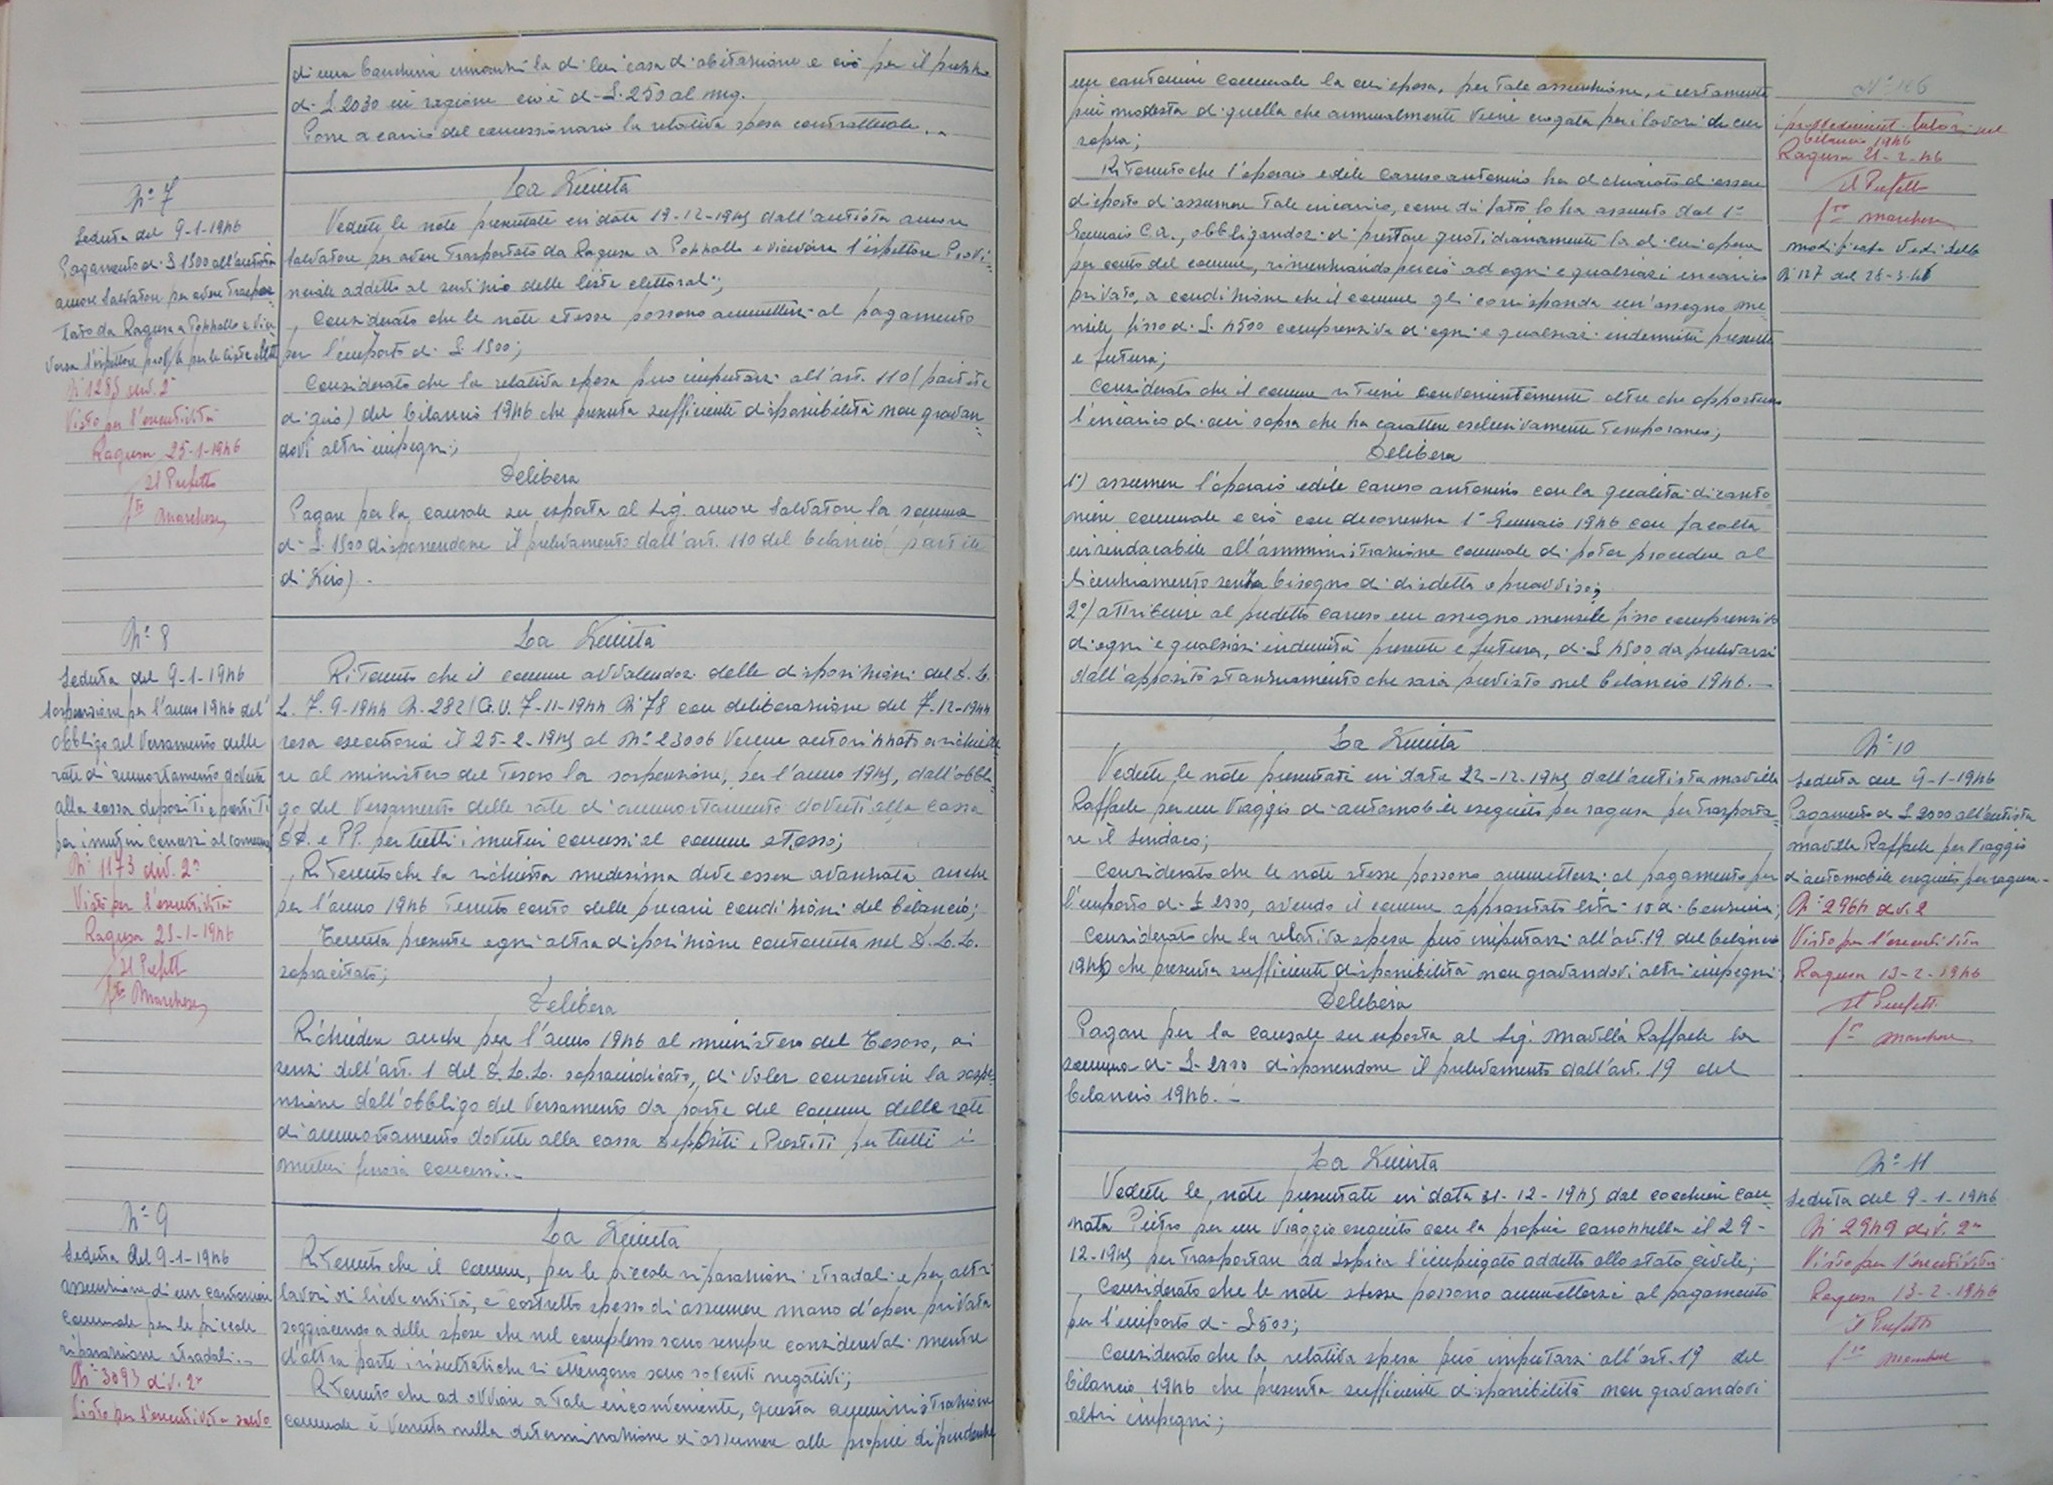 di una banchina innanzi la di lui casa di abitazione e ciò per il prezzo
di £ 2030 in ragione cioè di £. 250 al mq.
Porre a carico del concessionario la relativa spesa contrattuale.
N° 7
Seduta del 9-1-1946
Pagamento di £ 1500 all'autista
Amore Salvatore per avere traspor
tato da Ragusa a Pozzallo e vice
versa l'ispettore prov/le per le liste elett
N° 1285 div. 2ª
Visto per l'esecutività
Ragusa 25-1-1946
Il Prefetto
f.to Marchese
La Giunta
Vedute le note presentate in data 19-12-1945 dall'autista Amore
Salvatore per avere trasportato da Ragusa a Pozzallo e viceversa l'ispettore Provi-
nciale addetto al servizio delle liste elettorali;
Considerato che le note stesse possono ammettersi al pagamento
per l'importo di £ 1500;
Considerato che la relativa spesa può imputarsi all'art. 110 (partite
di giro) del bilancio 1946 che presenta sufficiente disponibilità non gravan-
dovi altri impegni;
Delibera
Pagare per la causale su esposta al Sig. Amore Salvatore la somma
di £. 1500 disponendone il prelevamento dall'art. 110 del bilancio (partite
di giro).-
N° 8
Seduta del 9-1-1946
Sospensione per l'anno 1946 dell'
obbligo del versamento delle
rate di ammortamento dovute
alla cassa depositi e prestiti
per i mutui concessi al comune
N° 1173 div. 2ª
Visto per l'esecutività
Ragusa 25-1-1946
Il Prefetto
f.to Marchese
La Giunta
Ritenuto che il comune avvalendosi delle disposizioni del D.L.
L. 7-9-1944 N. 282 (G.U. 7-11-1944 N° 78 con deliberazione del 7-12-1944
resa esecutoria il 25-2-1945 al N° 23006 venne autorizzato a richiede
re al ministero del Tesoro la sospensione, per l'anno 1945, dall'obbli-
go del versamento delle rate di ammortamento dovuti alla cassa
DD. e PP. per tutti i mutui concessi al comune stesso;
Ritenuto che la richiesta medesima deve essere avanzata anche
per l'anno 1946 tenuto conto delle precarie condizioni del bilancio;
Tenuta presente ogni altra disposizione contenuta nel D.L.L.
sopracitato;
Delibera
Richiedere anche per l'anno 1946 al ministero del Tesoro, ai
sensi dell'art. 1 del D.L.L. sopraindicato, di voler consentire la sospe-
nsione dall'obbligo del versamento da parte del comune delle rate
di ammortamento dovute alla cassa Depositi e Prestiti per tutti i
mutui finora concessi.-
N° 9
Seduta del 9-1-1946
assunzione di un cantoniere
comunale per le piccole
riparazioni stradali.-
N° 3093 div. 2ª
Visto per l'esecutività salvo
La Giunta
Ritenuto che il comune, per le piccole riparazioni stradali e per altri
lavori di lieve entità, è costretto spesso di assumere mano d'opera privata
soggiacendo a delle spese che nel complesso sono sempre considerevoli mentre
d'altra parte i risultati che si ottengono sono soventi negativi;
Ritenuto che ad ovviare a tale inconveniente, questa amministrazione
comunale è venuta nella determinazione di assumere alle proprie dipendenze
un cantoniere comunale la cui spesa, per tale assunzione, è certamente
più modesta di quella che annualmente viene erogata per i lavori di cui
sopra;
Ritenuto che l'operaio edile Caruso Antonino ha dichiarato di essere
disposto di assumere tale incarico, come di fatto lo ha assunto dal 1°
Gennaio c.a., obbligandosi di prestare quotidianamente la di lui opera
per conto del comune, rinunziando perciò ad ogni e qualsiasi incarico
privato, a condizione che il comune gli corrisponda un'assegno me
nsile fisso di £. 4500 comprensivo di ogni e qualsiasi indennità presente
e futura;
Considerato che il comune ritiene convenientemente oltre che opportuno
l'incarico di cui sopra che ha carattere esclusivamente temporaneo;
Delibera
1°) assumere l'operaio edile Caruso Antonino con la qualità di canto
niere comunale e ciò con decorrenza 1° Gennaio 1946 con facoltà
insindacabile all'amministrazione comunale di poter procedere al
licenziamento senza bisogno di disdetta o preavviso;
2°) attribuire al predetto Caruso un assegno mensile fisso comprensivo
di ogni e qualsiasi indennità presente e futura, di £ 4500 da prelevarsi
dall'apposito stanziamento che sarà previsto nel bilancio 1946.-
N° 126
i provvedimenti tutori sul
bilancio 1946
Ragusa 21-2-46
Il Prefetto
f.to Marchese
modificata vedi delib
N° 127 del 28-3-46
La Giunta
Vedute le note presentate in data 22-12-1945 dall'autista Mavilla
Raffaele per un viaggio di automobile eseguito per Ragusa per trasporta-
re il Sindaco;
Considerato che le note stesse possono ammettersi al pagamento per
l'importo di £ 2000, avendo il comune apprestato litri 10 di benzina;
Considerato che la relativa spesa può imputarsi all'art. 19 del bilancio
1946 che presenta sufficiente disponibilità non gravandovi altri impegni;
Delibera
Pagare per la causale su esposta al Sig. Mavilla Raffaele la
somma di £. 2000 disponendone il prelevamento dall'art. 19 del
bilancio 1946.-
N° 10
Seduta del 9-1-1946
Pagamento di £ 2000 all'autista
Mavilla Raffaele per viaggio
di automobile eseguito per Ragusa-
N° 2964 div. 2
Visto per l'esecutività
Ragusa 13-2-1946
Il Prefetto
f.to Marchese
La Giunta
Vedute le note presentate in data 31-12-1945 dal cocchiere Can-
nata Pietro per un viaggio eseguito con la propria carrozzella il 29-
12-1945 per trasportare ad Ispica l'impiegato addetto allo stato civile;
Considerato che le note stesse possono ammettersi al pagamento
per l'importo di £ 500;
Considerato che la relativa spesa può imputarsi all'art. 19 del
bilancio 1946 che presenta sufficiente disponibilità non gravandovi
altri impegni;
N° 11
Seduta del 9-1-1946
N° 2949 div. 2ª
Visto per l'esecutività
Ragusa 13-2-1946
Il Prefetto
f.to Marchese